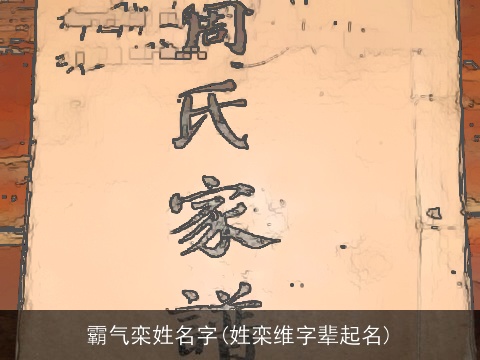 周氏家譜
霸气栾姓名字(姓栾维字辈起名)